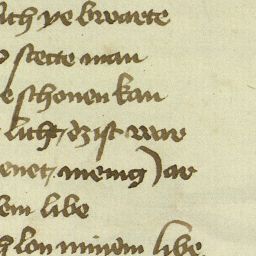 ich ye bewarte
stette man
e schonen kan
licht / dz ist war
enet / menig Jar
em libe
h lon minem libe